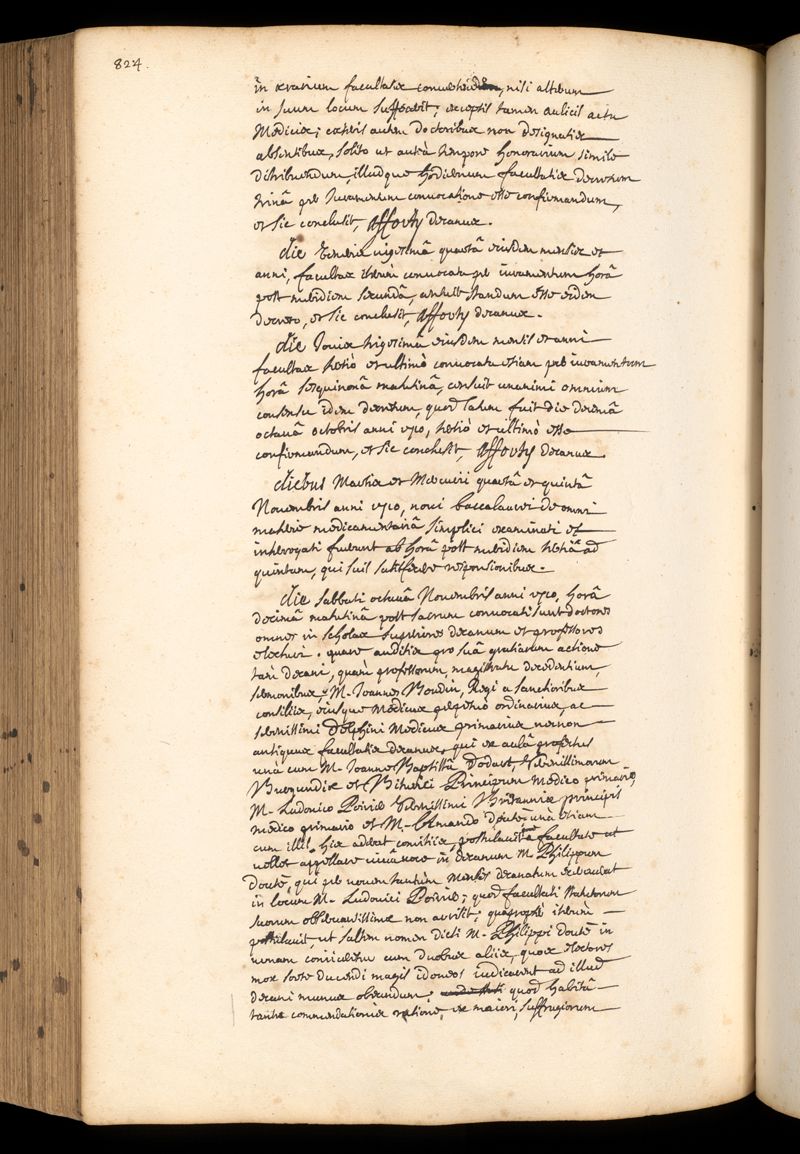 824.
in ærarium facultatis convertendum, nisi alterum
in suum locum suffecerit; exceptis tamen aulicis actu
Medicis; cæteris autem doctoribus non designatis
absentibus, solito ut anteà tempore honorarium simile
distribuendum, illudque hodiernum facultatis decretum
trinâ per Juramentum convocatione esse confirmandum,
et sic conclusit, decanus.
die Veneris vigesimâ quartâ eiusdem mensis et
anni, facultas iterùm convocata per iuramentum horâ
post meridiem secundâ, censuit standum esse eidem
decreto, et sic conclusit, decanus.
die Jovis trigesimâ eiusdem mensis et anni
facultas tertiò et ultimò convocata etiam per iuramentum
horâ sesquinonâ matutinâ, censuit unanimi omnium
consensu idem decretum, quod latum fuit die decimâ
octauâ octobris anni 1710, tertiò et ultimò esse
confirmandum, et sic conclusit, decanus.
diebus Martis et Mercurii quartâ et quintâ
Novembris anni 1710, novi baccalaurei de omni
materie medicamentariâ simplici examinati et
interrogati fuerunt ab horâ post meridiem tertiâ ad
quintam, qui suis satisfecere responsionibus.
die sabbati octauâ Novembris anni 1710, horâ
decimâ matutinâ post sacrum convocati sunt doctores
omnes in scholas superiores decanum et professores
electuri. quare auditis pro suâ gratiarum actione
tam decani, quàm professorum, magistratu decedentium,
sermonibus, M. Joannes Boudin, Regi a sanctioribus
consiliis, eiusque Medicus perpetuò ordinarius, ac
serenissimi Delphini Medicus primarius necnon
antiquus facultatis decanus, qui ex aulâ profectus
unà cum M. Joanne Baptistâ Dodart, serenissimorum
Burgundiæ et Biturici Principum Medico primario,
M. Ludovico Poirier serenissimi Britanniæ principis
medico primario et M. Armando Douté unà etiam
cum illis his aderat comitiis, postulavit a facultate ut
vellet appellare in decanum M. Philippum
Douté, qui per novem tantum menses decanatum exercuerat
in locum M. Ludovici Poirier; quod facultati statutorum
suorum observantissimæ non arrisit; quapropter iterùm
postulavit, ut saltem nomen dicti M. Philippi Douté in
urnam coniiceretur cum duobus aliis, quos electores
mox sorte ducendi magis idoneos iudicaverint ad illud
decani munus obeundum; quod habitâ
tantæ commendationis ratione, ex maiori suffragiorum